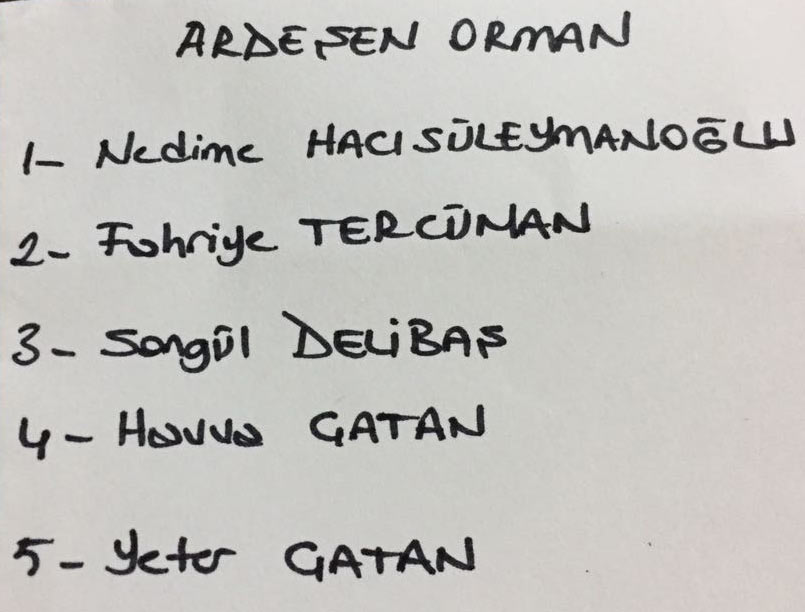 ARDEŞEN ORMAN
1- Nedime HACISÜLEYMANOĞLU
2- Fahriye TERCÜMAN
3- Songül DELİBAŞ
4- Havva GATAN
5- Yeter GATAN